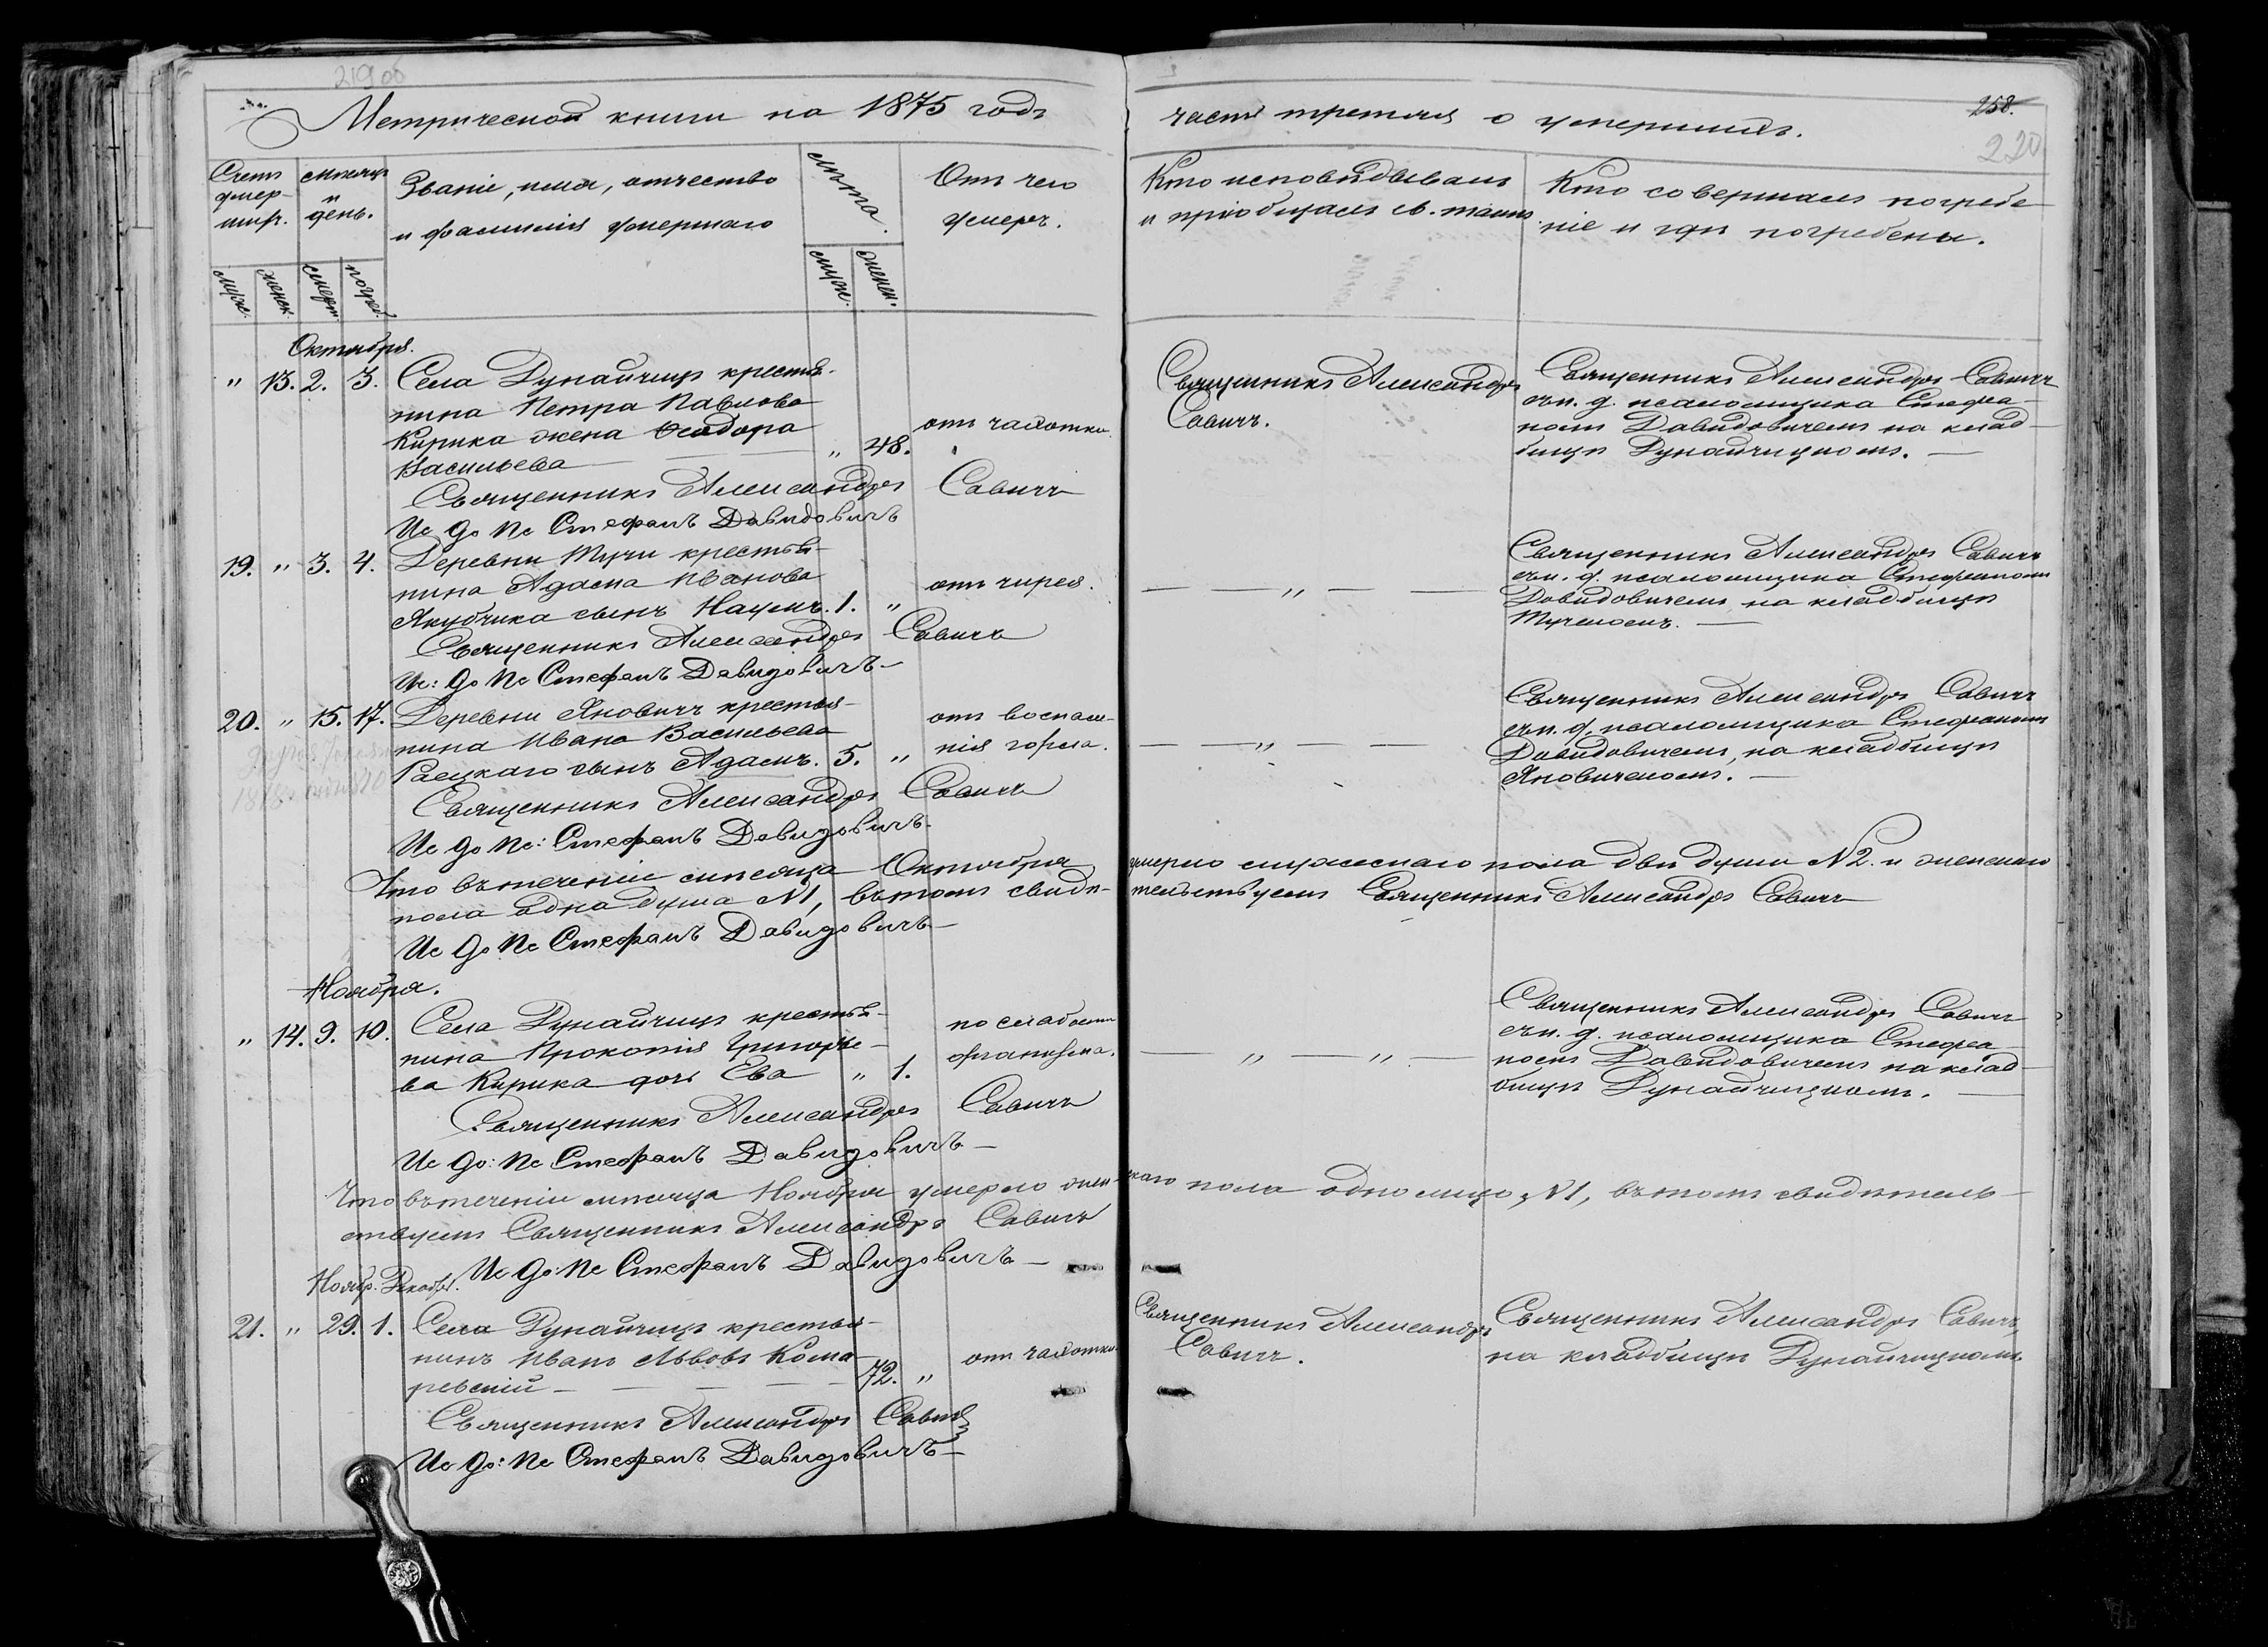 219об
Метрической книги на 1875 годъ
часть третья о умершихъ.
258.
220
Счетъ умер-шихъ.
Мѣсяцъ и день.
Званіе, имя, отчество
и фамилія умершаго
Лѣта.
Отъ чего
умеръ.
Кто исповѣдывалъ
и пріобщалъ св. таинъ.
Кто совершалъ погребе
ніе и гдѣ погребены.
муже.
женск.
смерт.
погреб.
муже.
женск.
Октября.
" 13. 2. 3. Села Дунайчицъ крестья-
нина Петра Павлова
Кирика жена Ѳеодора
Васильева " 48.
отъ чахотки.
Священникъ Александръ
Савичъ.
Священникъ Александръ Савичъ
съ и. д. псаломщика Стефа-
номъ Давидовичемъ на клад-
бищѣ Дунайчицкомъ.
Священникъ Александръ Савичъ
Ис До Пс Стефанъ Давидовичъ
19. " 3. 4. Деревни Тучи крестья-
нина Адама Иванова
Якубчика сынъ Наумъ. 1. "
отъ чирея.
— — " — —
Священникъ Александръ Савичъ
съ и. д. псаломщика Стефаномъ
Давидовичемъ на кладбищѣ
Тучскомъ.
Священникъ Александръ Савичъ
Ис: До Пс Стефанъ Давидовичъ
20. " 15. 17. Деревни Яновичъ крестья-
нина Ивана Васильева
Раецкаго сынъ Адамъ. 5. "
отъ воспале-
нія горла.
— — " — —
Священникъ Александръ Савичъ
съ и. д. псаломщика Стефаномъ
Давидовичемъ, на кладбищѣ
Яновичскомъ.
Священникъ Александръ Савичъ
Ис До Пс: Стефанъ Давидовичъ
Что въ теченіи мѣсяца Октября умерло мужескаго пола двѣ души N 2. и женскаго
пола одна душа N 1, въ томъ свидѣ-тельствуетъ Священникъ Александръ Савичъ
Ис До Пс Стефанъ Давидовичъ
Ноября.
" 14. 9. 10. Села Дунайчицъ крестья-
нина Прокопія Григорье-
ва Кирика дочь Ева " 1.
по слабости
организма.
— " — " —
Священникъ Александръ Савичъ
съ и. д. псаломщика Стефа-
номъ Давидовичемъ на клад-
бищѣ Дунайчицкомъ.
Священникъ Александръ Савичъ
Ис До: Пс Стефанъ Давидовичъ
Что въ теченіи мѣсяца Ноября умерло жен-скаго пола одно лицо, N 1, въ томъ свидѣтель-
ствуетъ Священникъ Александръ Савичъ
Ис До: Пс Стефанъ Давидовичъ
Ноябр. Декабр.
21. " 29. 1. Села Дунайчицъ крестья-
нинъ Иванъ Львовъ Кома-
ревскій 72. "
отъ чахотки.
Священникъ Александръ
Савичъ.
Священникъ Александръ Савичъ,
на кладбищѣ Дунайчицкомъ
Священникъ Александръ Савичъ
Ис До: Пс Стефанъ Давидовичъ